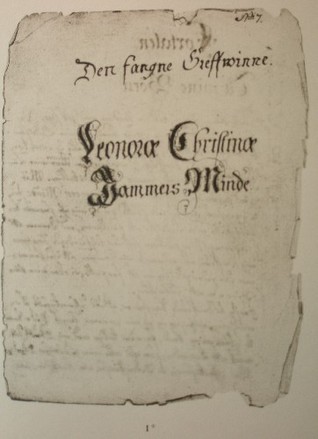 Den fangne Greffwinne.
Leonoræ Christinæ
Jammers Minde
1*